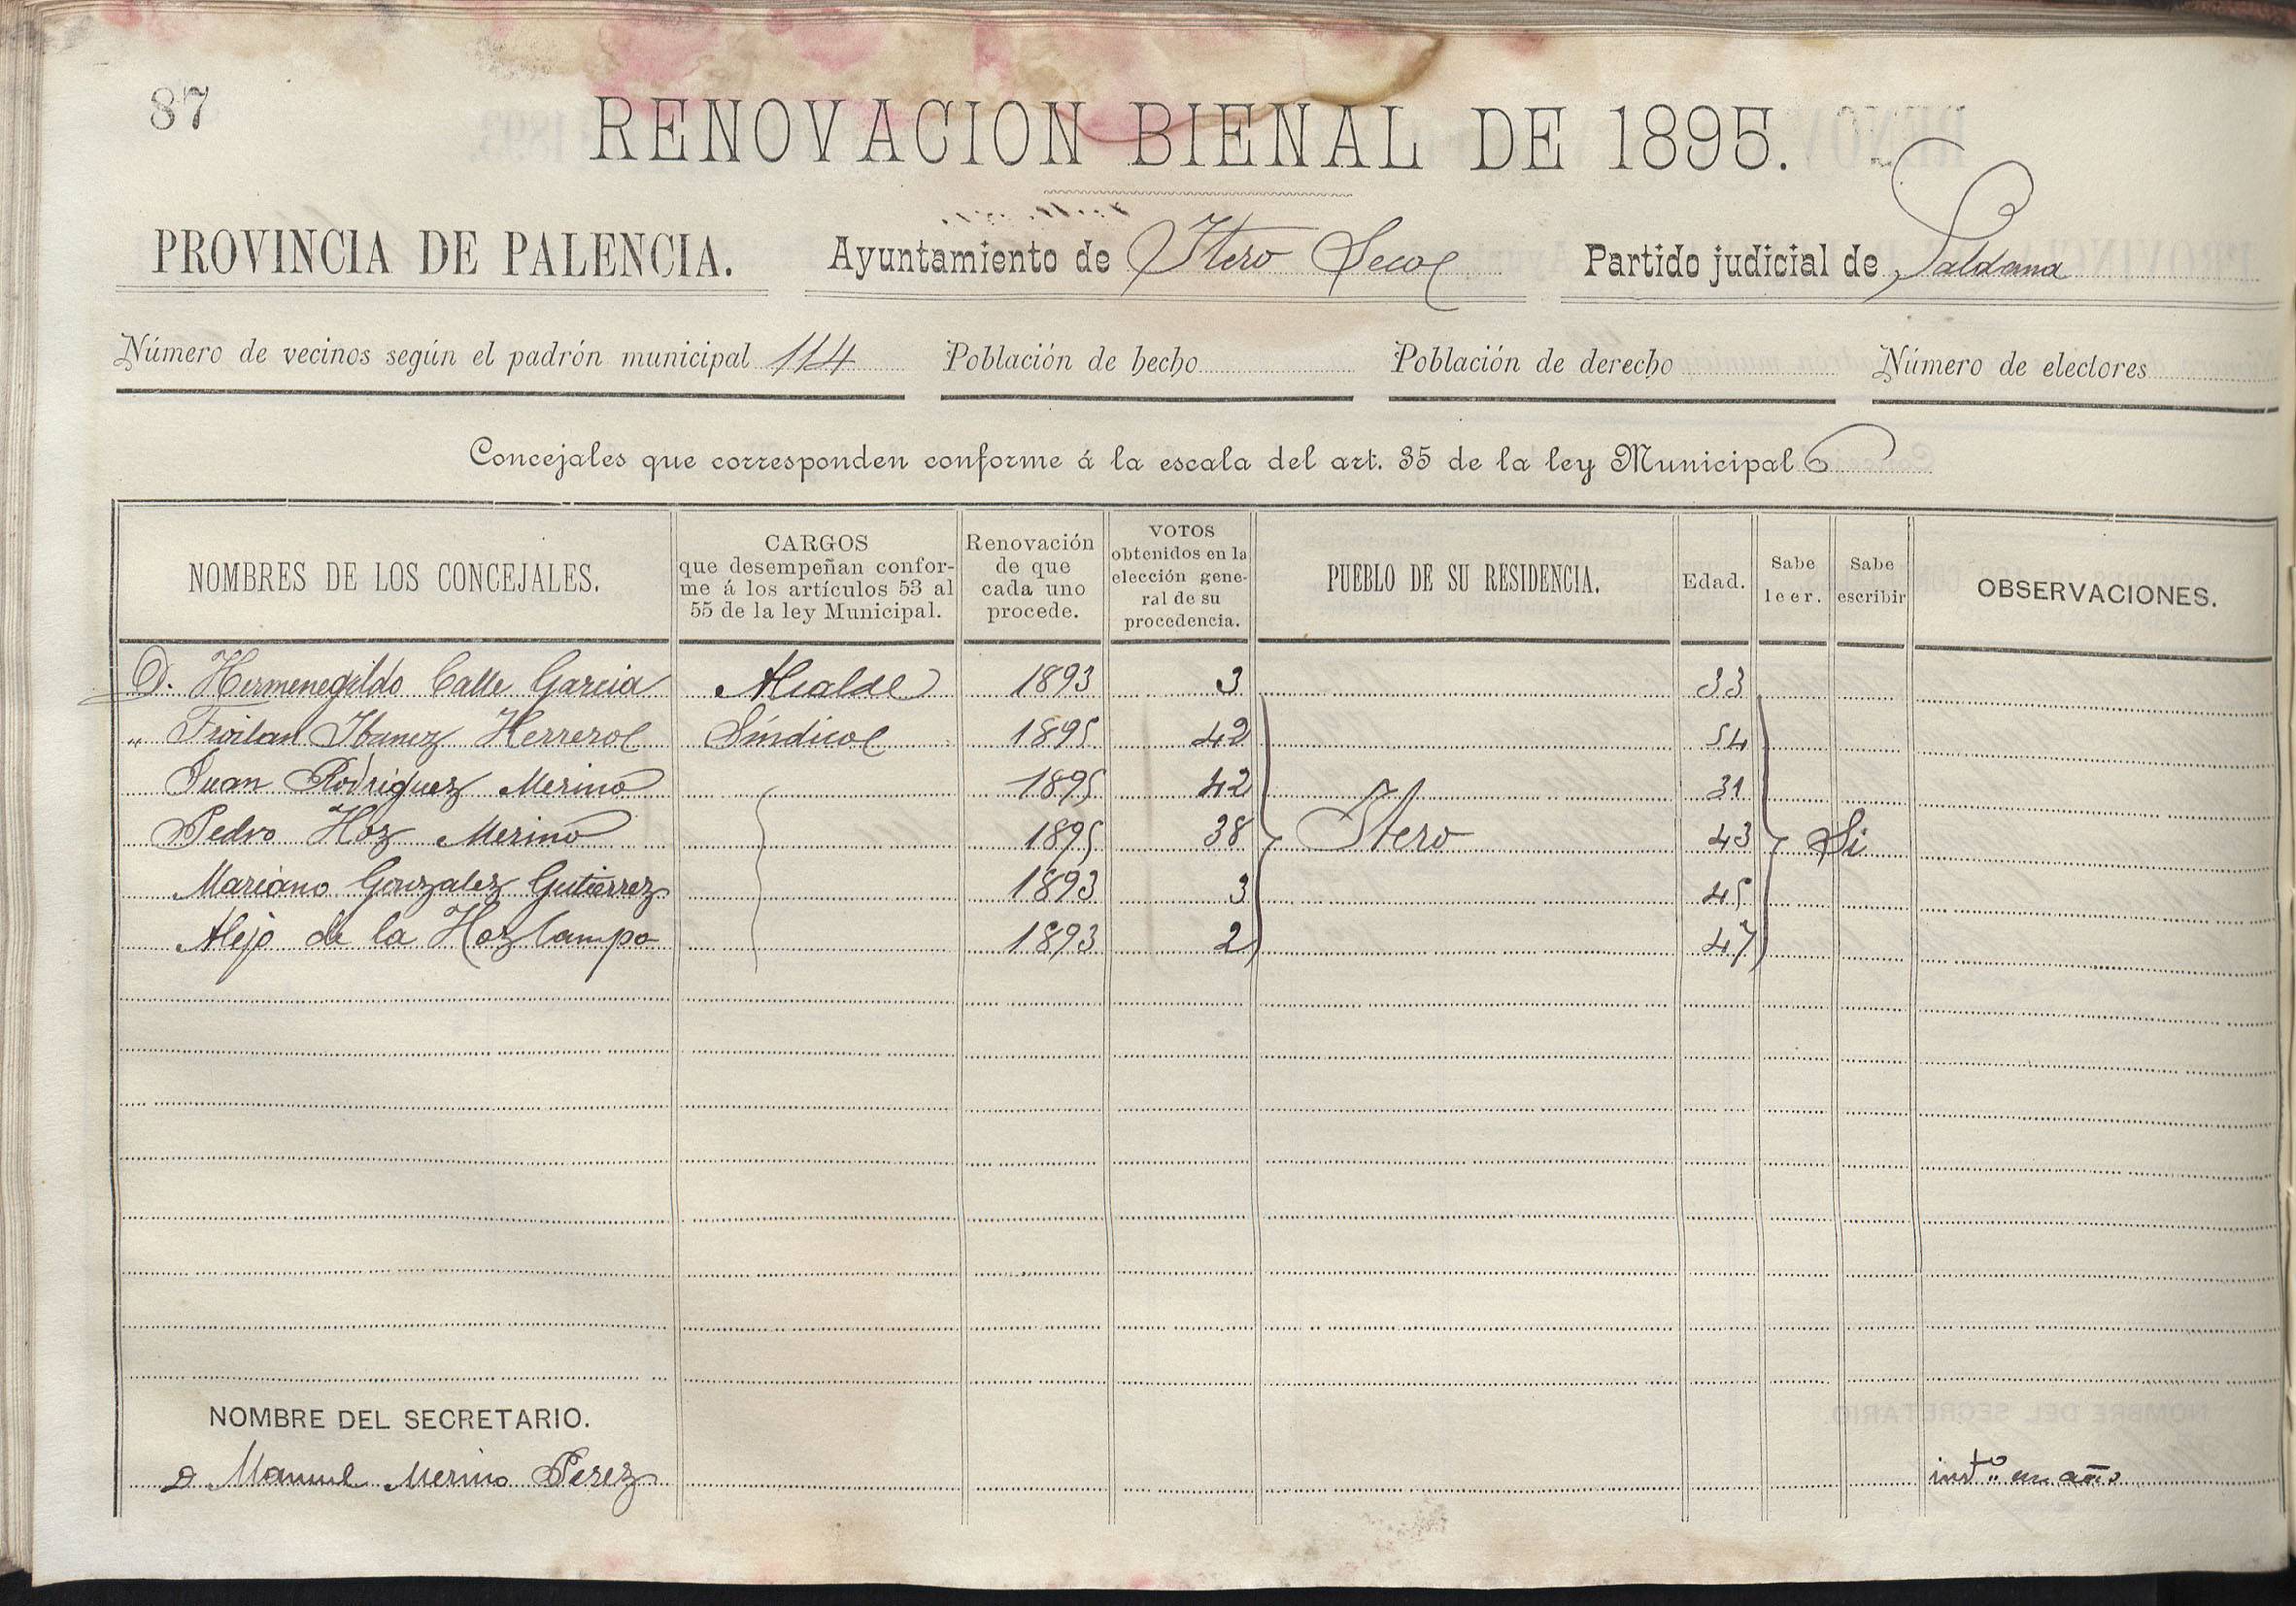 87
RENOVACION BIENAL DE 1895.
PROVINCIA DE PALENCIA. Ayuntamiento de Itero Seco Partido judicial de Saldaña
Número de vecinos según el padrón municipal 114 Población de hecho Población de derecho Número de electores
Concejales que corresponden conforme á la escala del art. 35 de la ley Municipal 6
NOMBRES DE LOS CONCEJALES. CARGOS que desempeñan conforme á los artículos 53 al 55 de la ley Municipal. Renovación de que cada uno procede. VOTOS obtenidos en la elección general de su procedencia. PUEBLO DE SU RESIDENCIA. Edad. Sabe leer. Sabe escribir OBSERVACIONES.
D. Hermenegildo Calle Garcia Alcalde 1893 3 33
" Froilan Ibanez Herrero Síndico 1895 42 54
Juan Rodriguez Merino 1895 42 31
Pedro Hoz Merino 1895 38 Itero 43 Si
Mariano Gonzalez Gutierrez 1893 3 45
Alejo de la Hoz Campo 1893 2 47
NOMBRE DEL SECRETARIO.
D Manuel Merino Perez int.º un año